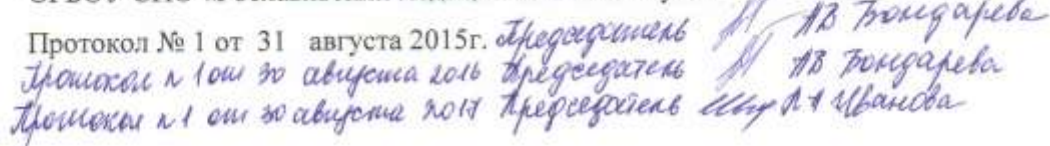 Протокол № 1 от 31 августа 2015г. Председатель АВ Бондарева
Протокол n 1 от 30 августа 2016 Председатель АВ Бондарева
Протокол n 1 от 30 августа 2017 Председатель Иванова